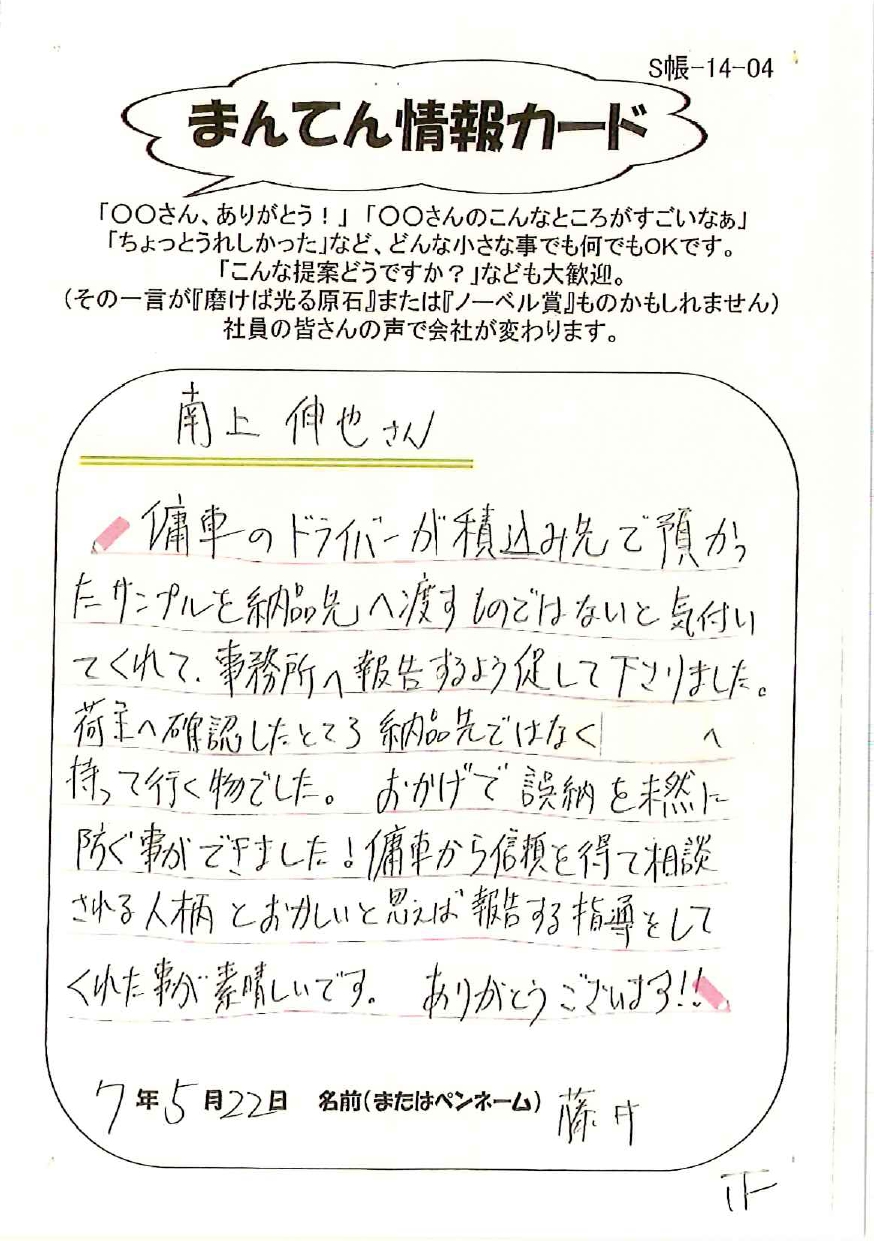 S帳-14-04
まんてん情報カード
「〇〇さん、ありがとう！」「〇〇さんのこんなところがすごいなぁ」
「ちょっとうれしかった」など、どんな小さな事でも何でもOKです。
「こんな提案どうですか？」なども大歓迎。
（その一言が『磨けば光る原石』または『ノーベル賞』ものかもしれません）
社員の皆さんの声で会社が変わります。
南上 伸也さん
傭車のドライバーが積込み先で預かっ
たサンプルを納品先へ渡すものではないと気付い
てくれて、事務所へ報告するよう促して下さりました。
荷主へ確認したところ納品先ではなく へ
持って行く物でした。 おかげで誤納を未然に
防ぐ事ができました！傭車から信頼を得て相談
される人柄とおかしいと思えば報告する指導をして
くれた事が素晴しいです。 ありがとうございます!!
7年5月22日 名前（またはペンネーム） 藤井